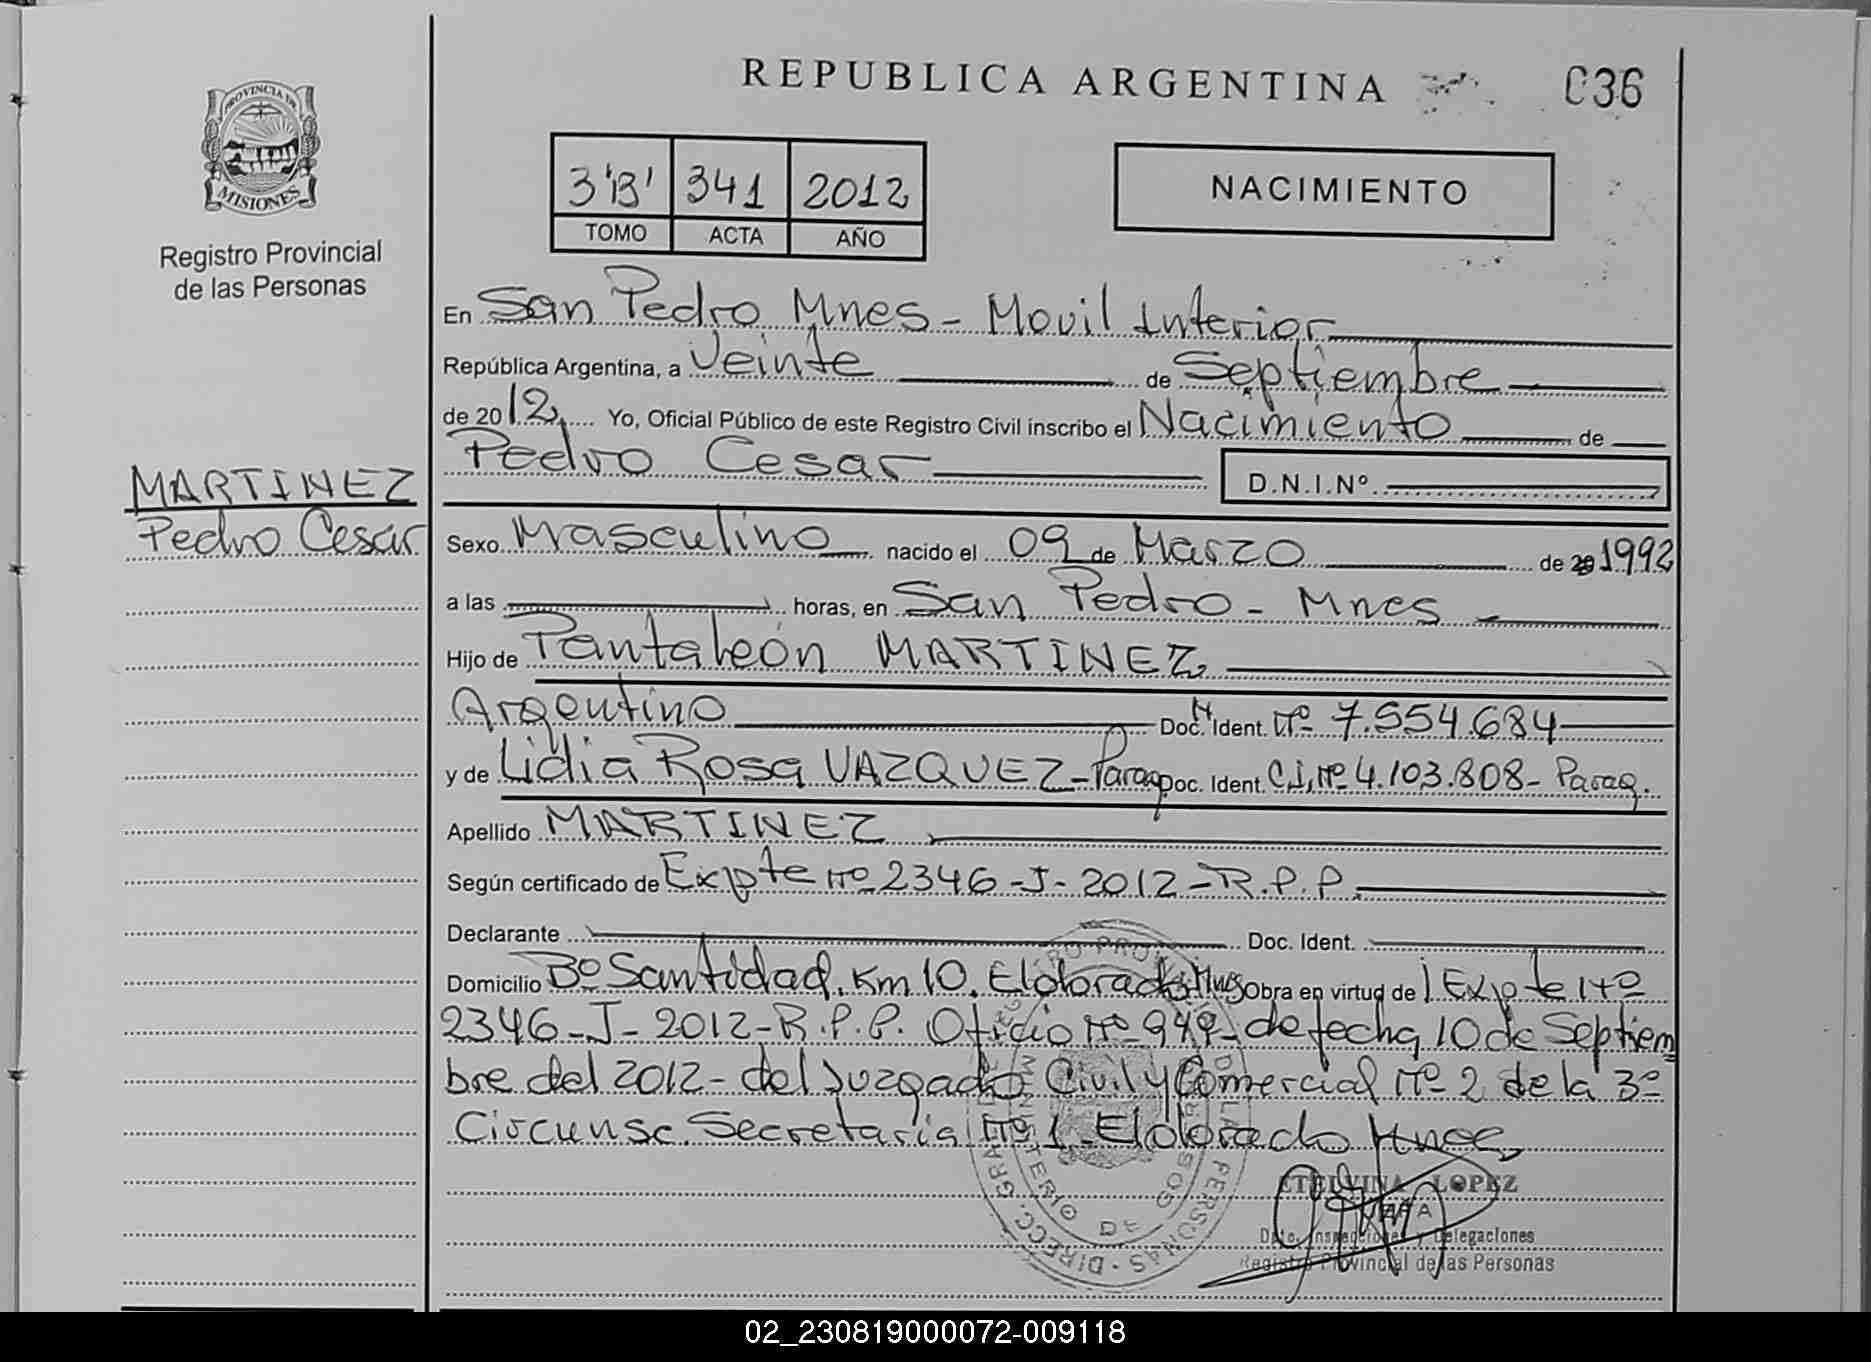 REPUBLICA ARGENTINA
036
PROVINCIA DE
MISIONES
Registro Provincial
de las Personas
3'B' 341 2012
TOMO ACTA AÑO
NACIMIENTO
En San Pedro Mnes - Movil Interior
República Argentina, a Veinte de Septiembre
de 2012 Yo, Oficial Público de este Registro Civil inscribo el Nacimiento de
Pedro Cesar D.N.I.Nº
MARTINEZ
Pedro Cesar
Sexo Masculino nacido el 09 de Marzo de 20 1992
a las horas, en San Pedro - Mnes
Hijo de Pantaleón MARTINEZ
Argentino Doc. N Ident. Nº 7.554.684
y de Lidia Rosa VAZQUEZ - Parag Doc. Ident. C.I. Nº 4.103.808 - Parag.
Apellido MARTINEZ
Según certificado de Expte Nº 2346 - J - 2012 - R.P.P.
Declarante Doc. Ident.
Domicilio Bº Santidad. Km 10. Eldorado Mnes Obra en virtud de Expte Nº
2346 - J - 2012 - R.P.P. Oficio Nº de fecha 10 de Septiem
bre del 2012 - del Juzgado Civil y Comercial Nº 2 de la 3º
Circunsc. Secretaria Nº 1 Eldorado Mnes
ETELVINA LOPEZ
Dpto. Inspecciones y Delegaciones
Registro Provincial de las Personas
DIRECC. GRAL. DE PERSONAS
MINISTERIO DE
02_230819000072-009118